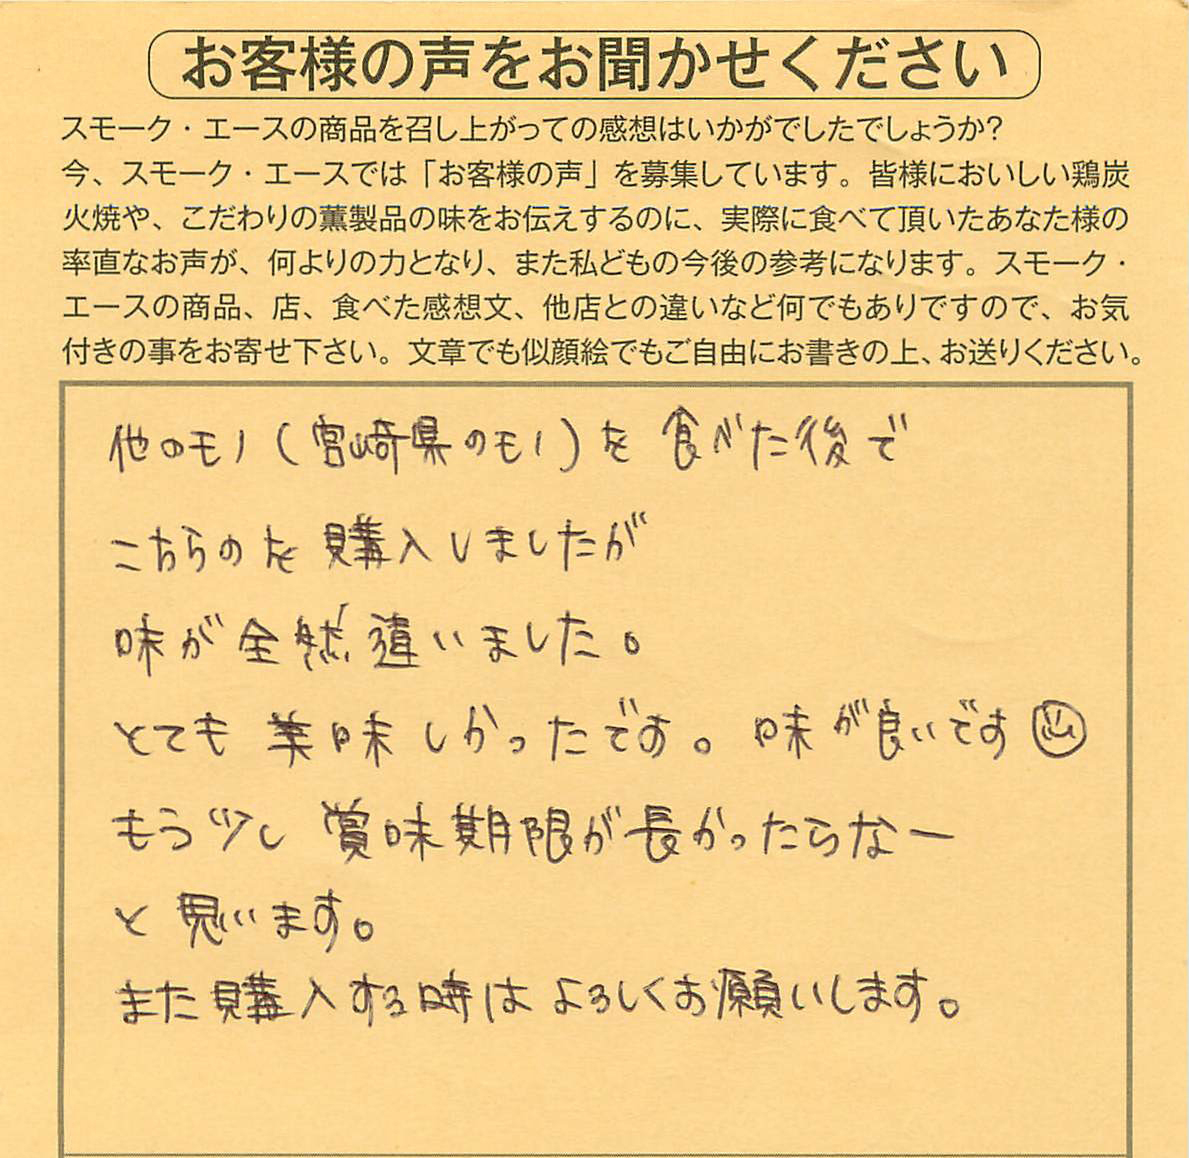 お客様の声をお聞かせください
スモーク・エースの商品を召し上がっての感想はいかがでしたでしょうか?
今、スモーク・エースでは「お客様の声」を募集しています。皆様においしい鶏炭
火焼や、こだわりの薫製品の味をお伝えするのに、実際に食べて頂いたあなた様の
率直なお声が、何よりの力となり、また私どもの今後の参考になります。スモーク・
エースの商品、店、食べた感想文、他店との違いなど何でもありですので、お気
付きの事をお寄せ下さい。文章でも似顔絵でもご自由にお書きの上、お送りください。
他のモノ(宮崎県のモノ)を食べた後で
こちらのを購入しましたが
味が全然違いました。
とても美味しかったです。味が良いです
もう少し賞味期限が長かったらなー
と思います。
また購入する時はよろしくお願いします。